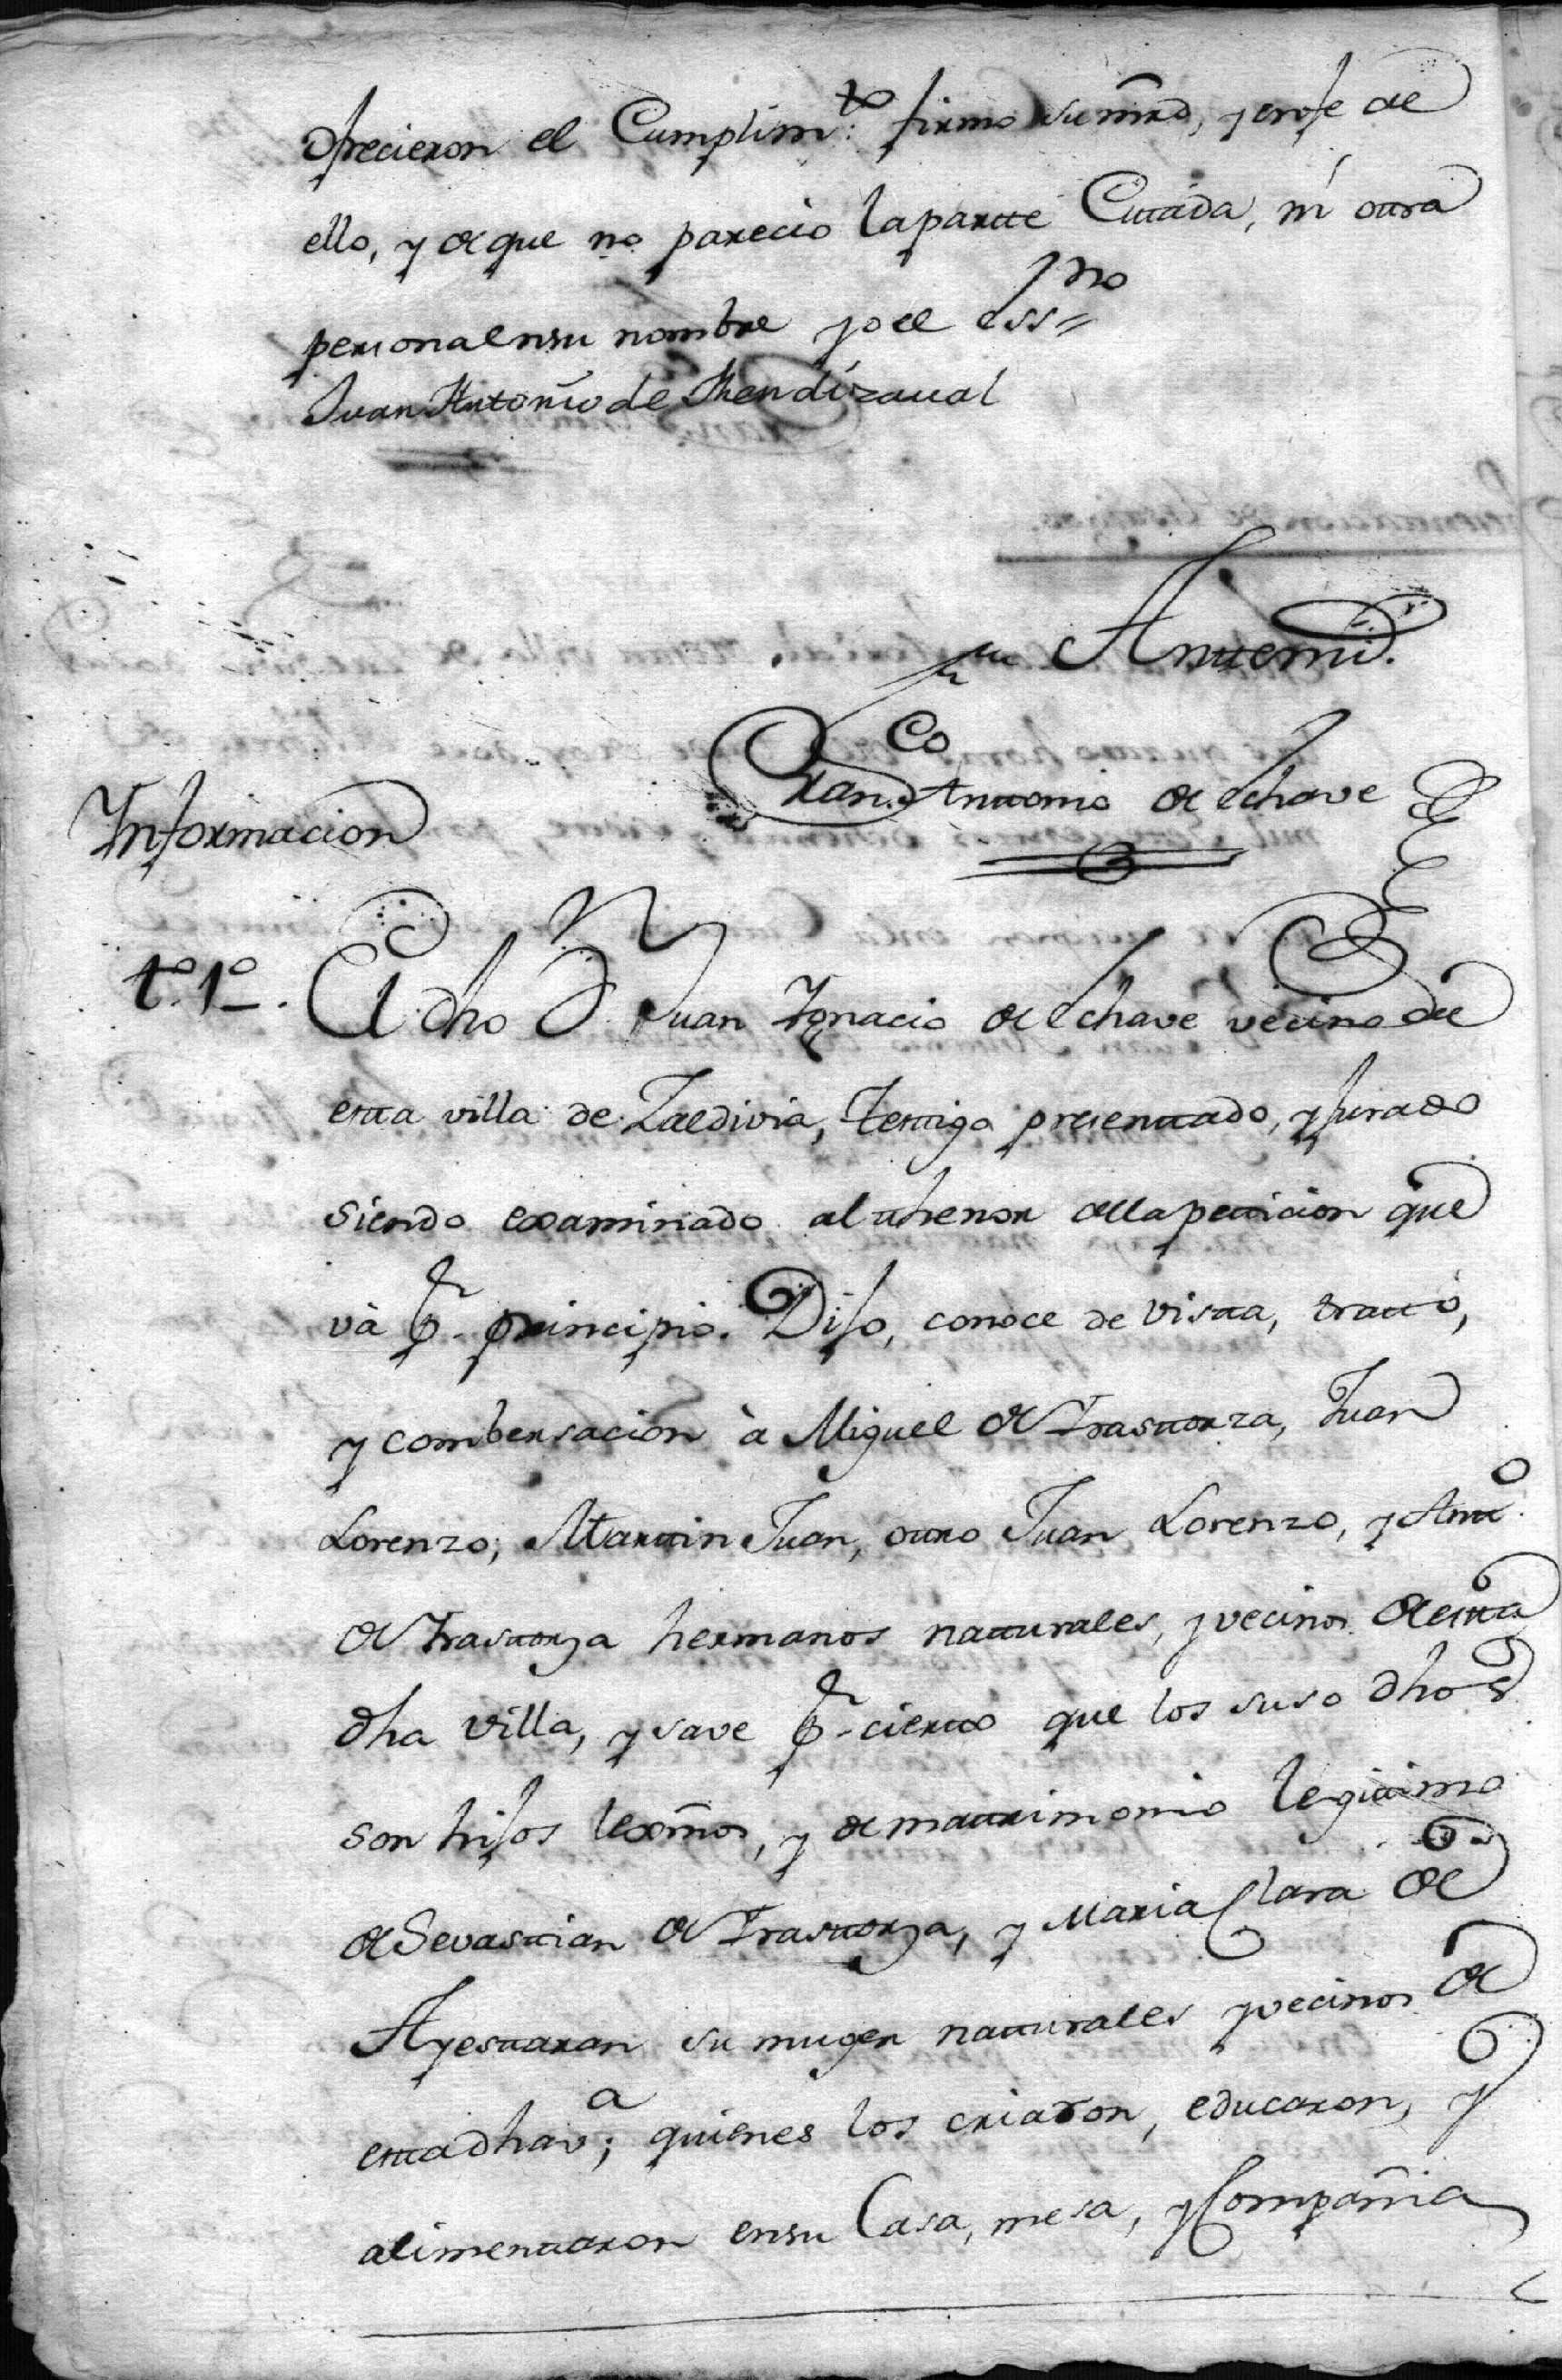 ofrecieron el Cumplim.to firmo su mrd, y enfe de
ello, y de que no parecio laparte Cittada, ni otra
persona ensu nombre yo el ess.no
Juan Antonio de Mendizaual
Antemi.
Fran.co Antonio de Echave
Informacion
t.o 1.o El dho D.n Juan Ignacio de Echave vecino de
esta villa de Zaldivia, testigo presentado, y jurado
siendo examinado al thenor dela peticion que
và p.r principio. Dijo, conoce de vista, tratto,
y combersacion à Miguel de Irastorza, Juan
Lorenzo, Martin Juan, otro Juan Lorenzo, y Ant.o
de Irastorza hermanos naturales, y vecinos de esta
dha villa, y save p.r cierto que los suso dhos
son hijos lexmos, y de matrimonio legitimo
de Sevastian de Irastorza, y Maria Clara de
Ayestaran su muger naturales y vecinos de
esta dha v.a; quienes los criaron, educaron, y
alimentaron ensu Casa, mesa, y Compañia